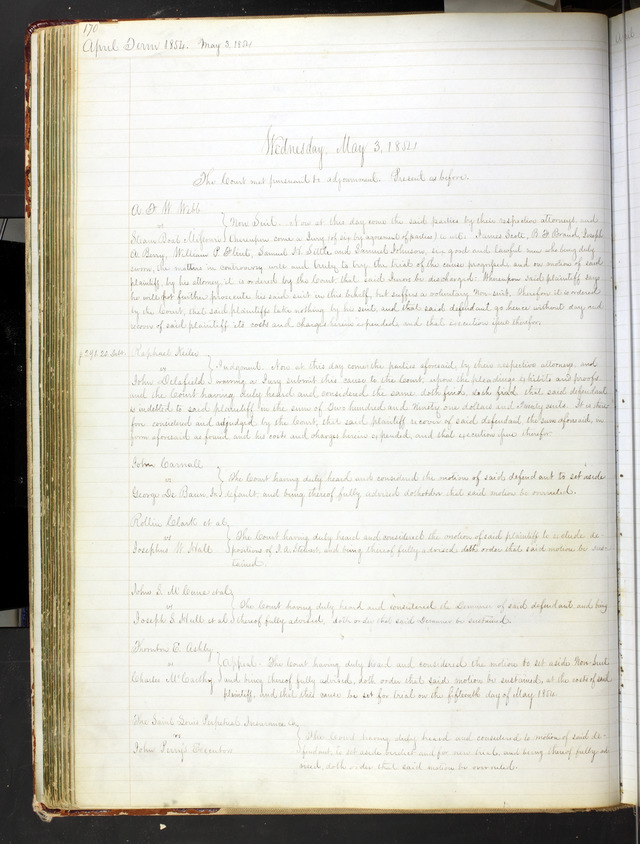 170
April Term 1854. May 3, 1854
Wednesday, May 3, 1854
The Court met pursuant to adjournment. Present as before.
A. & W. Webb
vs } Non Suit. Now at this day come the said parties by their respective attorneys, and
Steam Boat thereupon come a Jury (of six by agreement of parties) to wit. James Scott, B. F. Brand, Joseph
A. Berry, William P. Samuel H. Little and Samuel Johnson, six good and lawful men who being duly
sworn, the matters in controversy well and truly to try, the trial of the cause progressed and on motion of said
plaintiff, by his attorney, it is ordered by the Court that said Jurors be discharged. Whereupon said plaintiff says
he will not further prosecute his said suit in this behalf, but suffers a voluntary Non-suit. Therefore it is ordered
by the Court, that said plaintiffs take nothing by his suit, and that said defendant go hence without day, and
recover of said plaintiff its costs and charges herein expended, and that execution issue therefor.
$291.20 Debt. Raphael
vs } Judgment. Now at this day come the parties aforesaid, by their respective attorneys, and
John Delafield waiving a Jury submit this cause to the Court, upon the pleadings exhibits and proofs
and the Court having duly heard and considered the same doth find that said defendant
is indebted to said plaintiff in the sum of Two hundred and Ninety one dollars and twenty cents. It is there-
fore considered and adjudged by the Court, that said plaintiff recover of said defendant the sum aforesaid, in
form aforesaid so found and his costs and charges herein expended, and that execution issue therefor.
John
vs } The Court having duly heard and considered the motion of said defendant to set aside
George De default and being thereof fully advised doth order that said motion be overruled.
Rollin Clark et al.
vs } The Court having duly heard and considered the motion of said plaintiff to exclude de-
Josephus W. Hall positions of J. A. Stewart, and being thereof fully advised, doth order that said motion be sus-
tained.
John S. McCune et al
vs } The Court having duly heard and considered the Demurrer of said defendant, and being
Joseph G. Hull et al thereof fully advised, doth order that said Demurrer be sustained.
Thornton E. Ashby
vs } Appeal. The Court having duly heard and considered the motion to set aside Non Suit
Charles McCarthy and being thereof fully advised, doth order that said motion be sustained, at the costs of said
plaintiff, and that this cause be set for trial on the fifteenth day of May 1854.
The Saint Louis Perpetual Insurance Co.
vs } The Court having duly heard and considered the motion of said de-
John Perry's Executors fendant, to set aside verdict and for new trial, and being thereof fully ad-
vised, doth order that said motion be overruled.